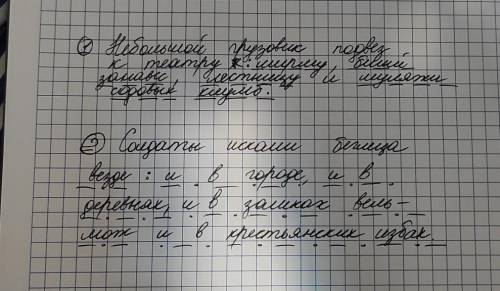 ① Небольшой грузовик подвёз
к театру : ширму, белый
занавес, лестницу и муляжи
садовых клумб.
② Солдаты искали беглеца
везде : и в городе, и в
деревнях, и в замках вель-
мож и в крестьянских избах.